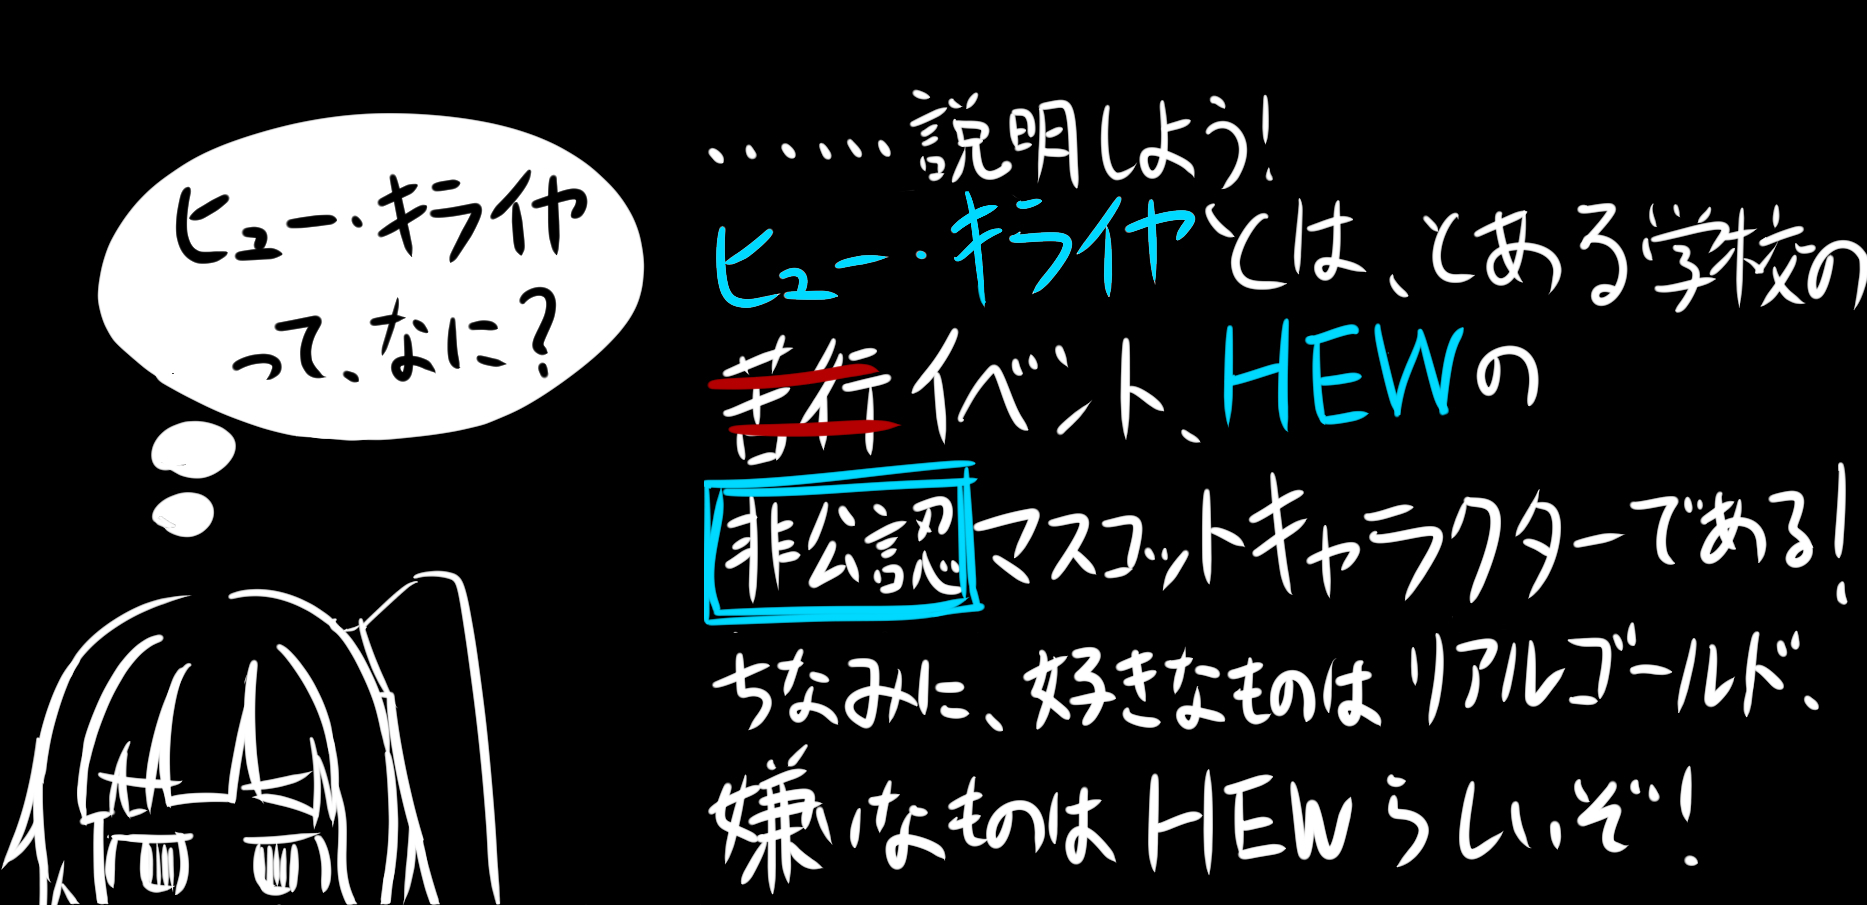 ヒュー・キライヤ
って、なに?
・・・・・・説明しよう!
ヒュー・キライヤとは、とある学校の
苦行イベント、HEWの
非公認マスコットキャラクターである!
ちなみに、好きなものはリアルゴールド、
嫌いなものはHEWらしいぞ!